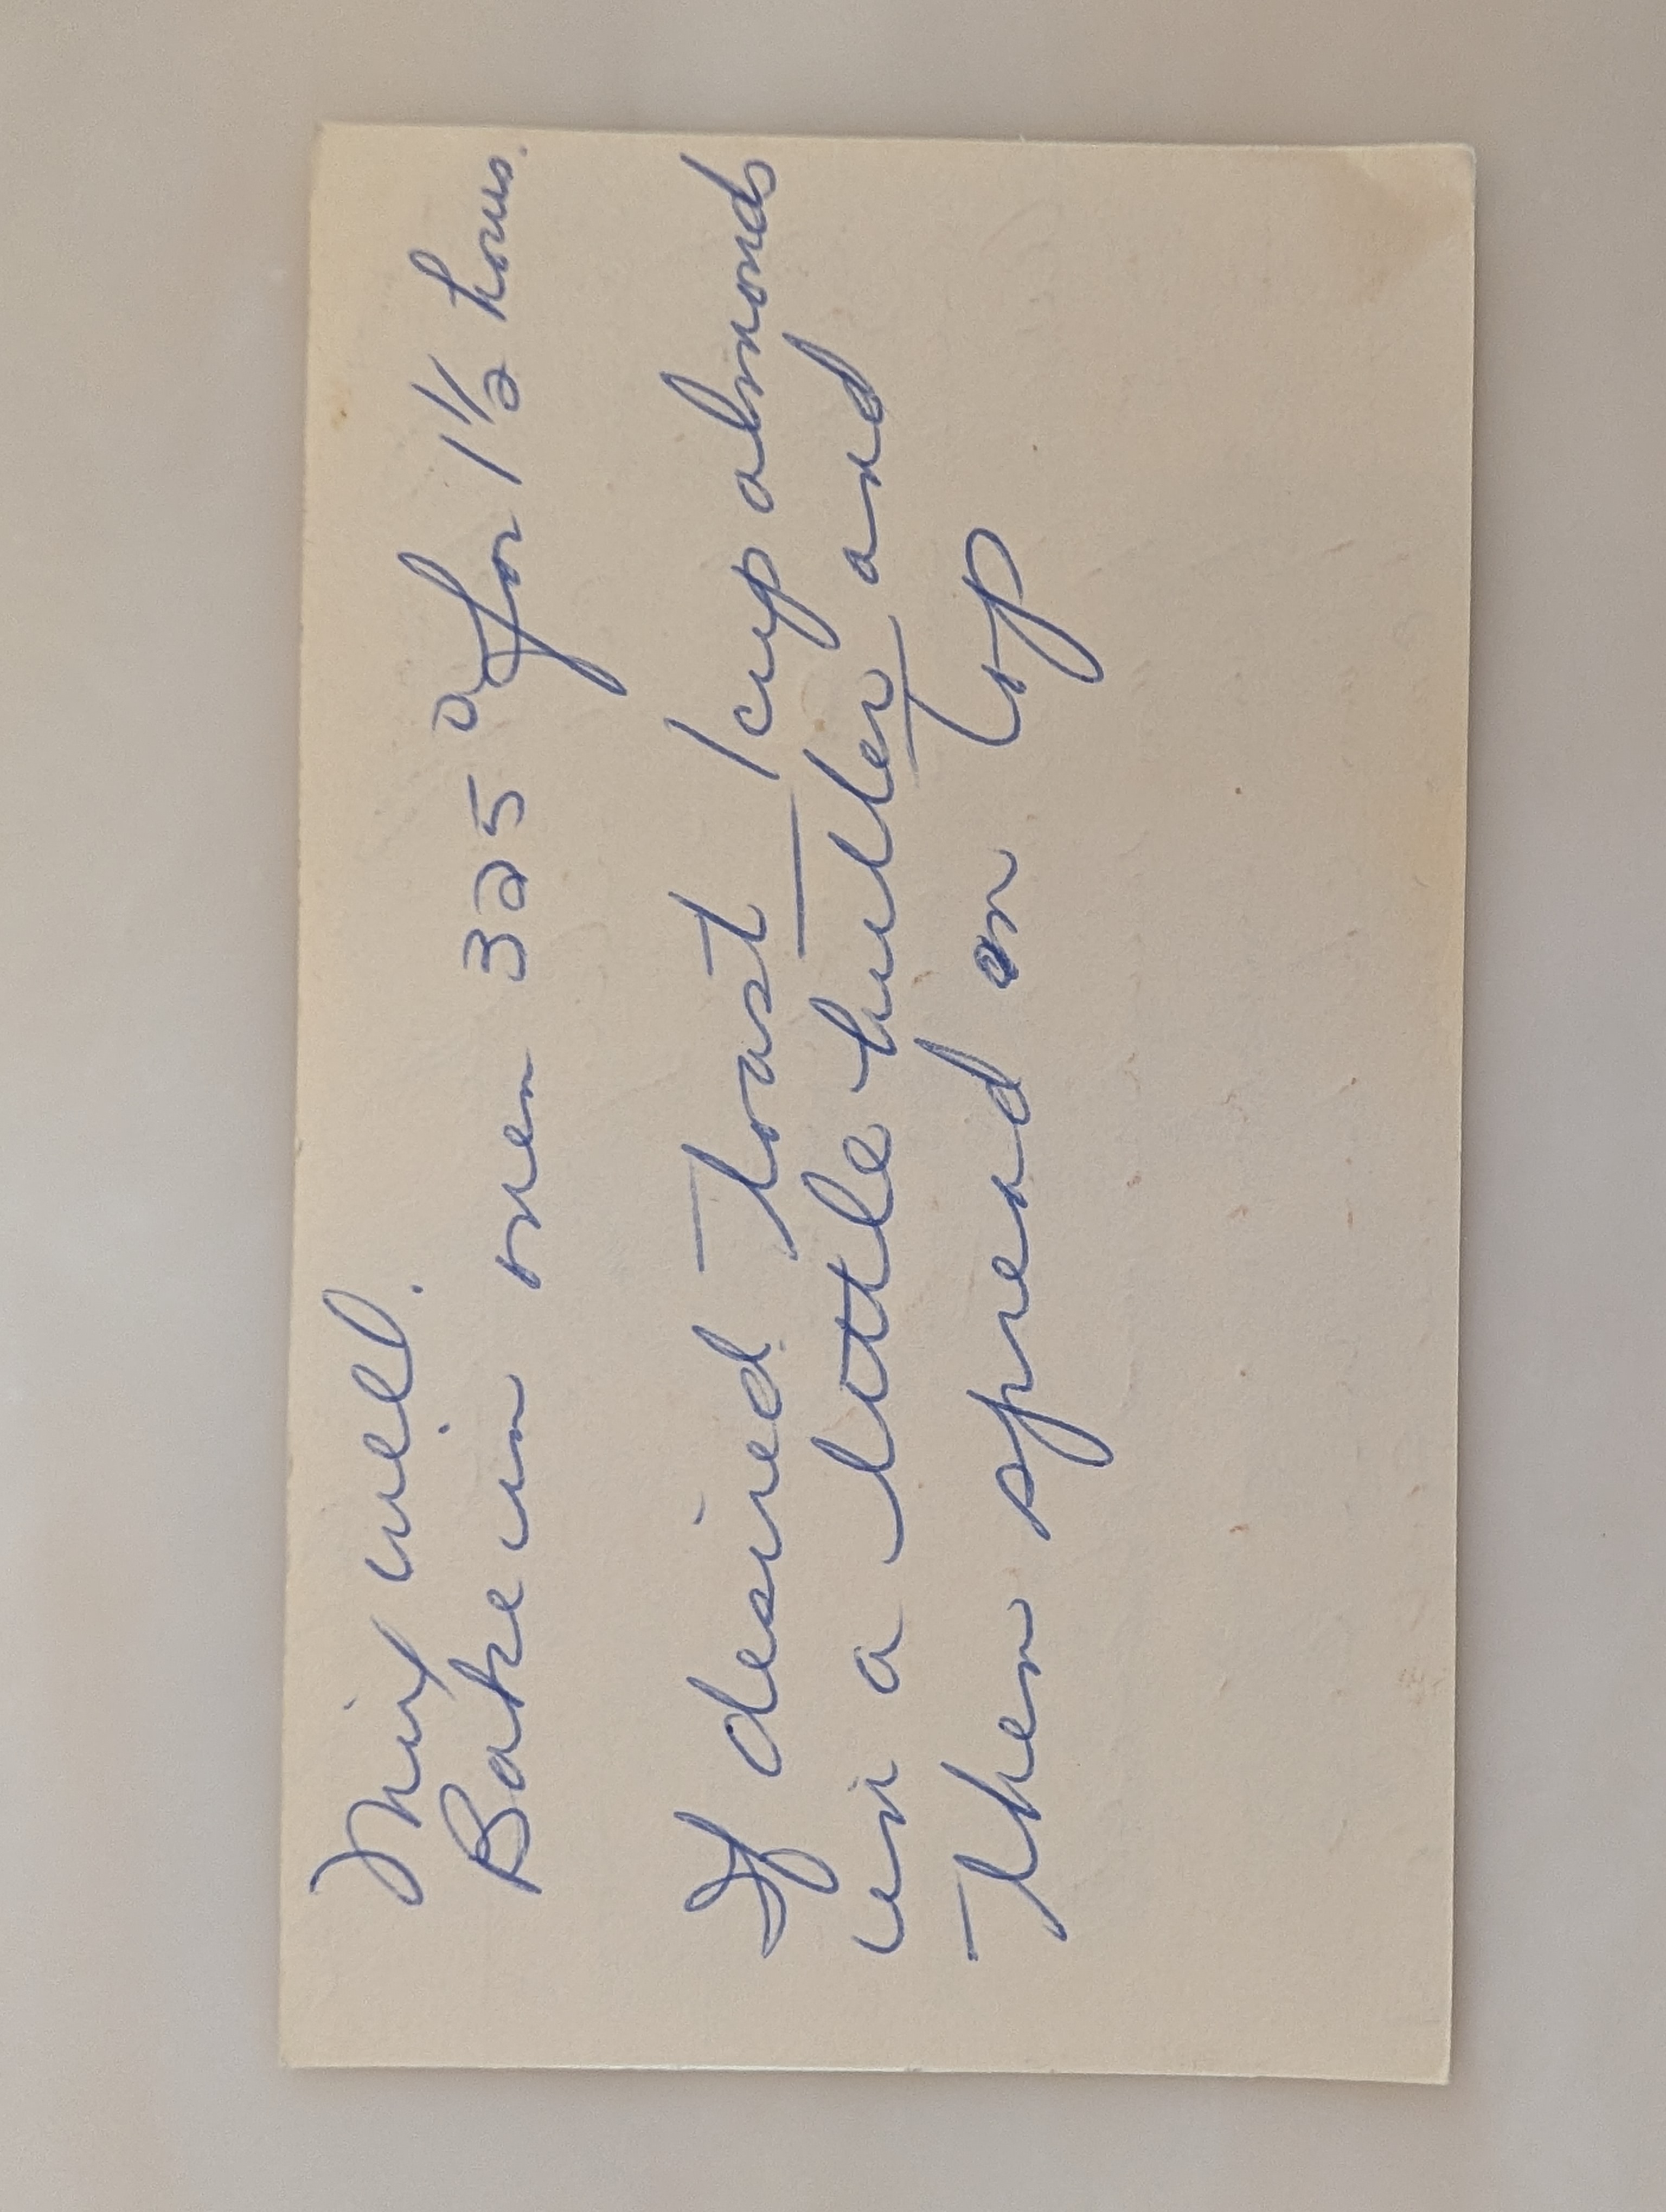 Mix well.
Bake in oven 325° for 1½ hours.
If desired toast 1 cup almonds
in a little butter and
then spread on top